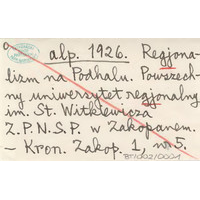 a
alp. 1926. Regjona-
lizm na Podhalu. Powszech-
ny uniwersytet regjonalny
im. St. Witkiewicza
Z.P.N.S.P. w Zakopanem.
– Kron. Zakop. 1, nr 5.